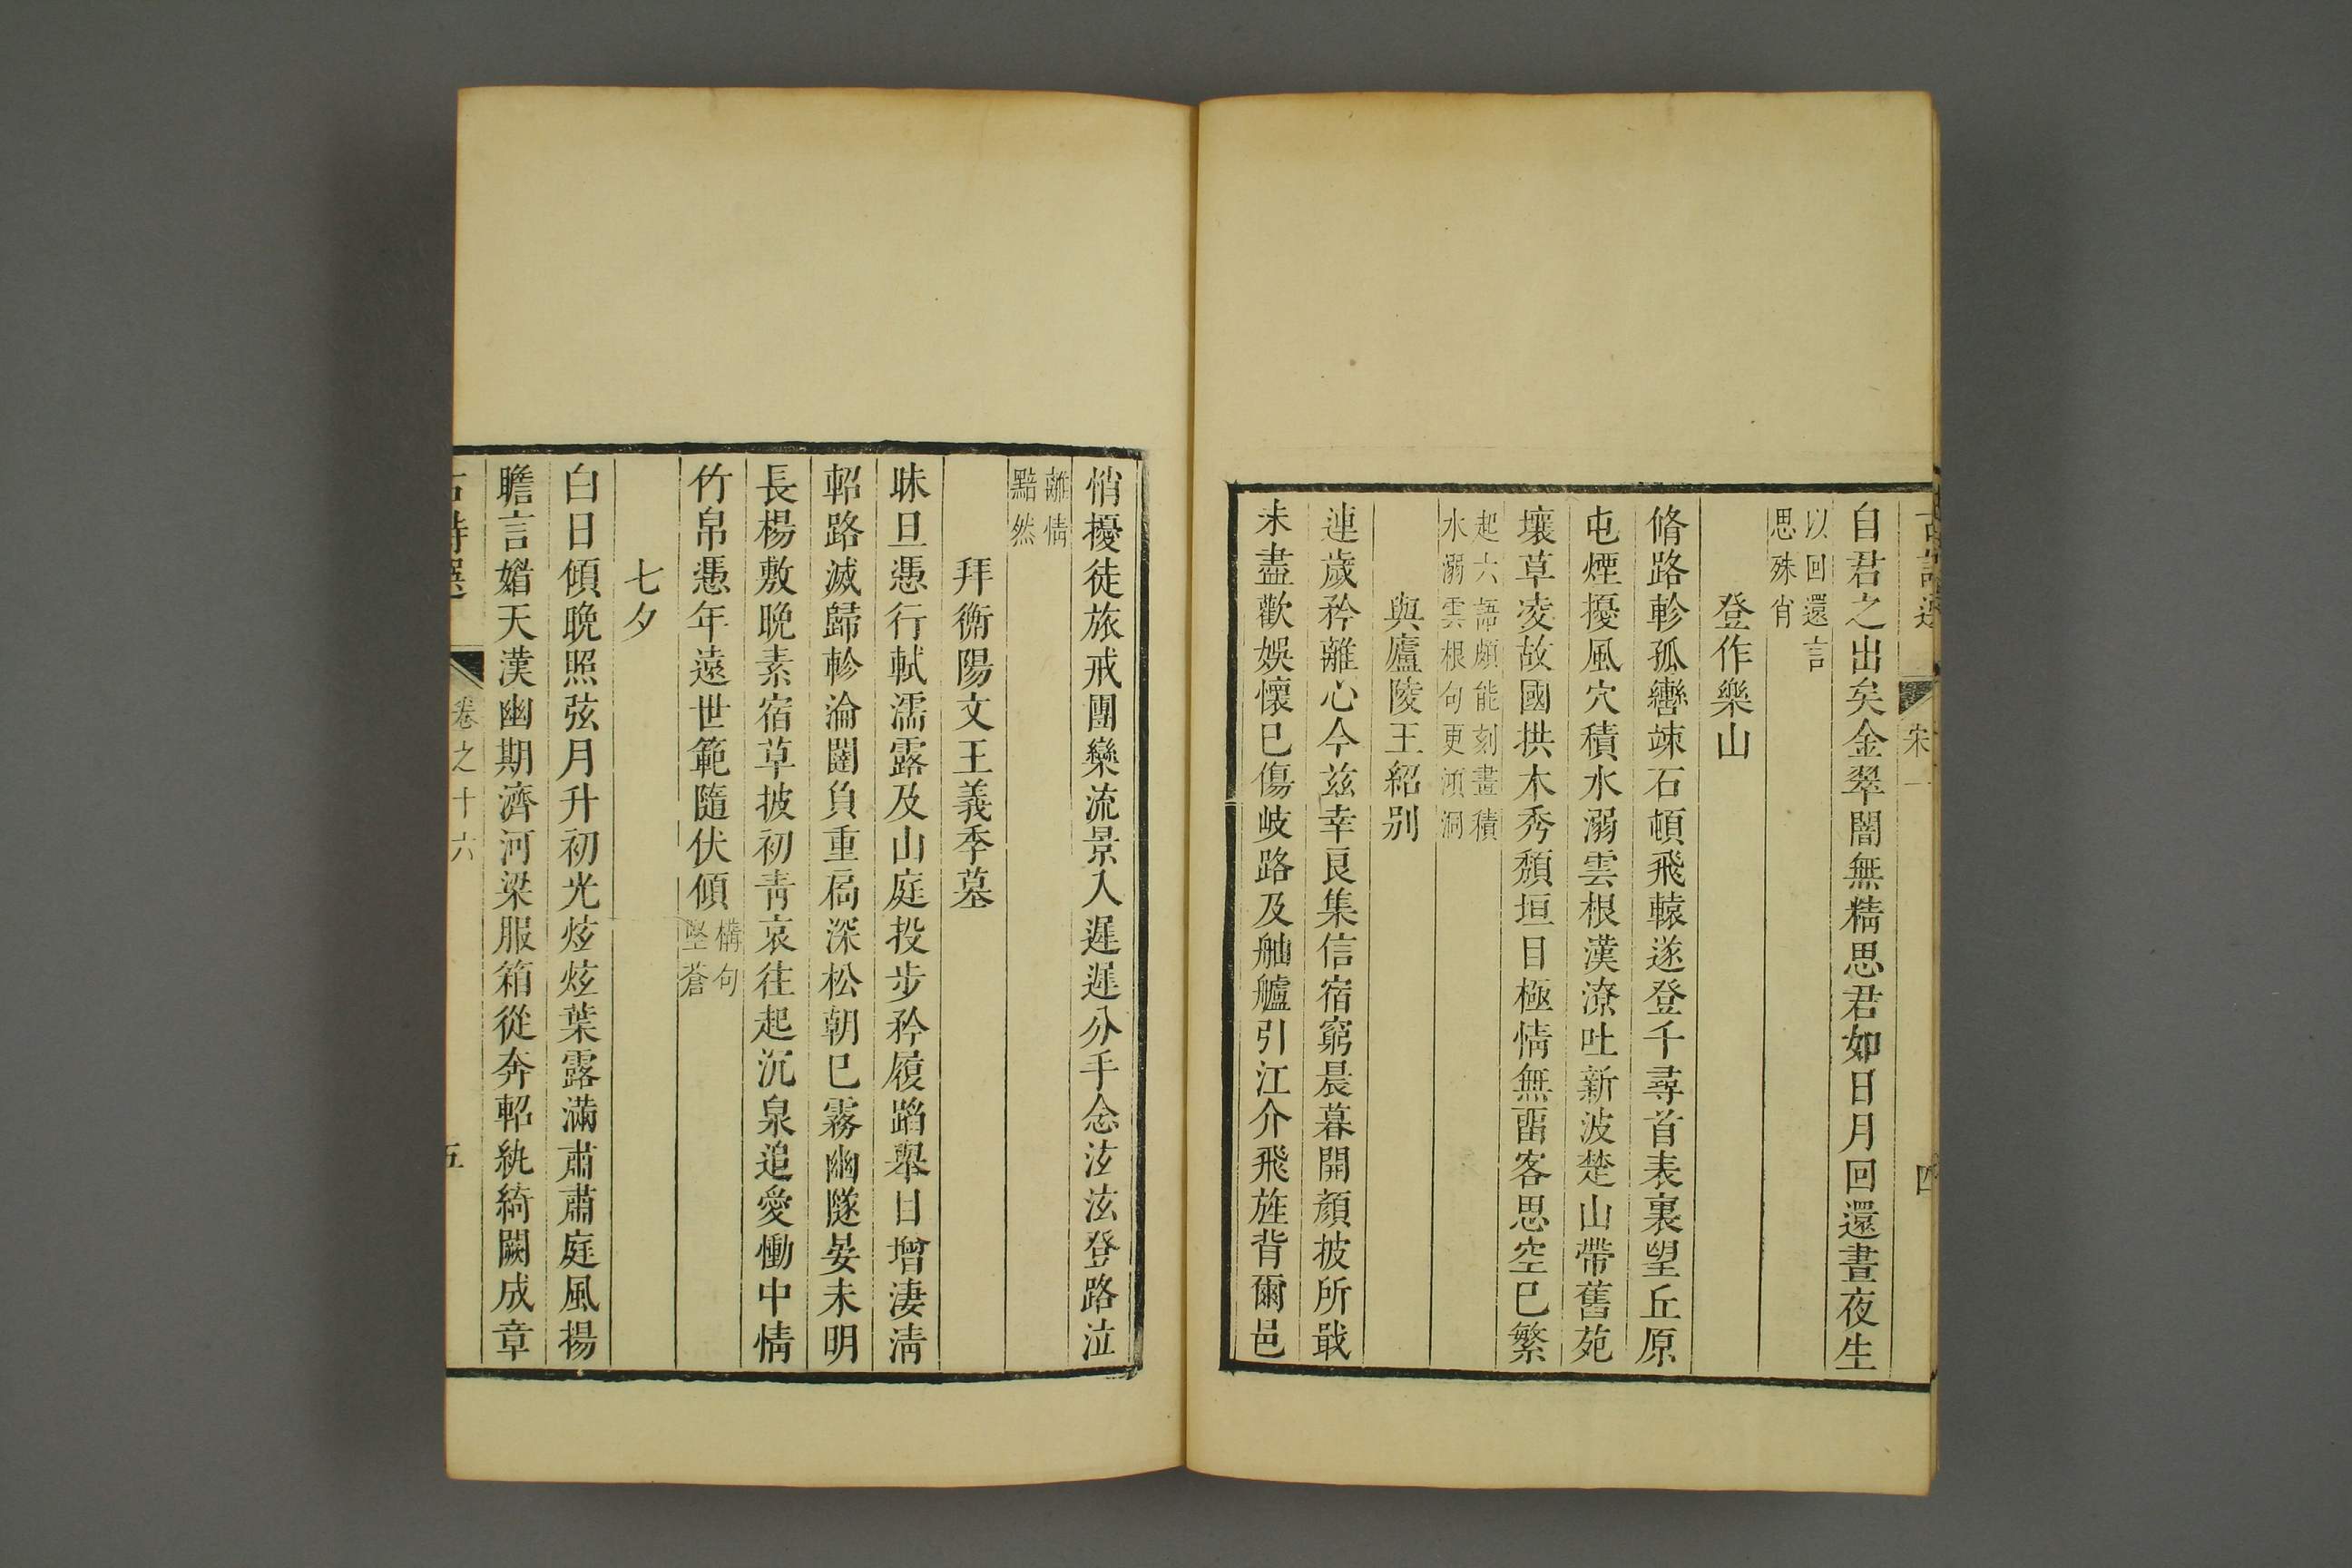 古詩選 宋一 四
自君之出矣金翠闇無精思君如日月回還晝夜生
以回還言
思殊肖
登作樂山
脩路軫孤轡竦石頓飛轅遂登千尋首表裏望丘原
屯煙擾風穴積水溺雲根漢潦吐新波楚山帶舊苑
壤草凌故國拱木秀頹垣目極情無留客思空已繁
起六語頗能刻畫積
水溺雲根句更澒洞
與廬陵王紹別
連歲矜離心今茲幸良集信宿窮晨暮開顏披所戢
未盡歡娛懷已傷岐路及舳艫引江介飛旌背爾邑
悄擾徒旅戒團欒流景入遲遲分手念泫泫登路泣
離情
黯然
拜衡陽文王義季墓
昧旦憑行軾濡露及山庭投步矜履蹈舉目增淒清
軺路滅歸軫淪闥負重扃深松朝已霧幽隧晏未明
長楊敷晚素宿草披初青哀往起沉泉追愛慟中情
竹帛憑年遠世範隨伏傾
構句
堅蒼
七夕
白日傾晚照弦月升初光炫炫葉露滿肅肅庭風揚
瞻言媚天漢幽期濟河梁服箱從奔軺紈綺闕成章
古詩選 卷之十六 五